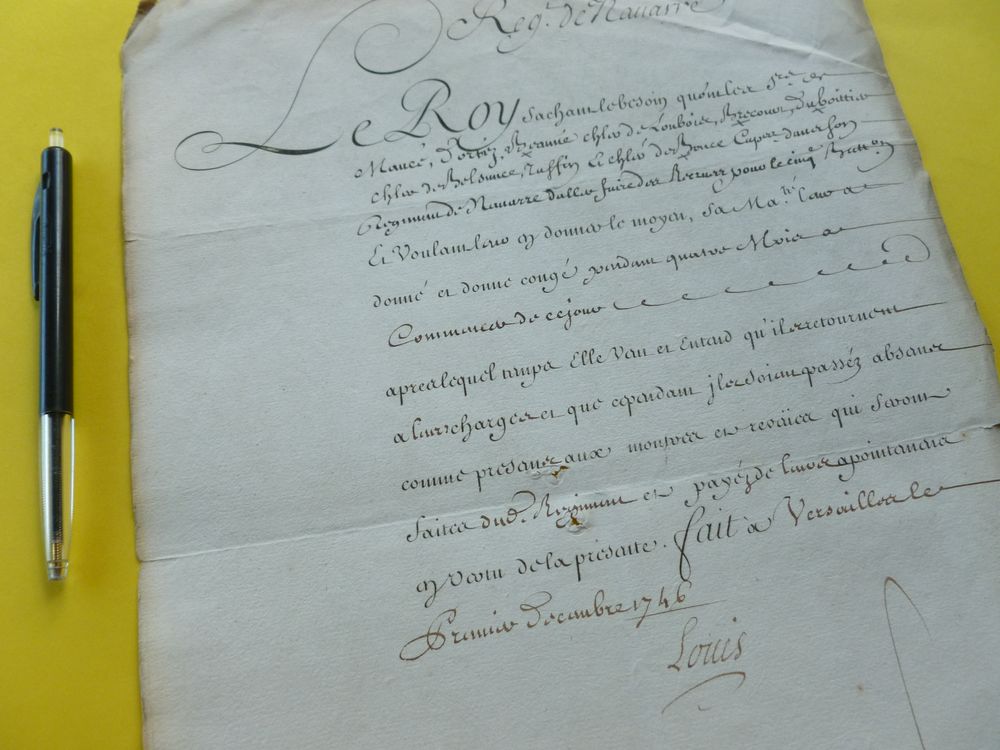 Reg.t de Navarre
Le Roy sachant le besoin qu'ont les S.rs de
Mancé, Dortez, Beaumé, ch.lier de Loubois, Brecourt, Dubouttier
ch.lier de Belsunce, Ruffin et ch.lier de Cap.nes dans son
Regiment de Navarre d'aller faire des Recrues pour le cinq.e Batt.on
Et Voulant leur en donner le moyen, Sa Ma.té leur a
donné et donne congé pendant quatre Mois a
Commencer de ce jour
apres lequel temps Elle Veut et Entend qu'ils retournent
a leurs charges et que cependant ils soient passéz absents
comme presents aux monstres et reveües qui seront
faites dud. Regiment et payéz de leurs apointements
en vertu de la presente. fait a Versailles le
Premier Decembre 1746
Louis